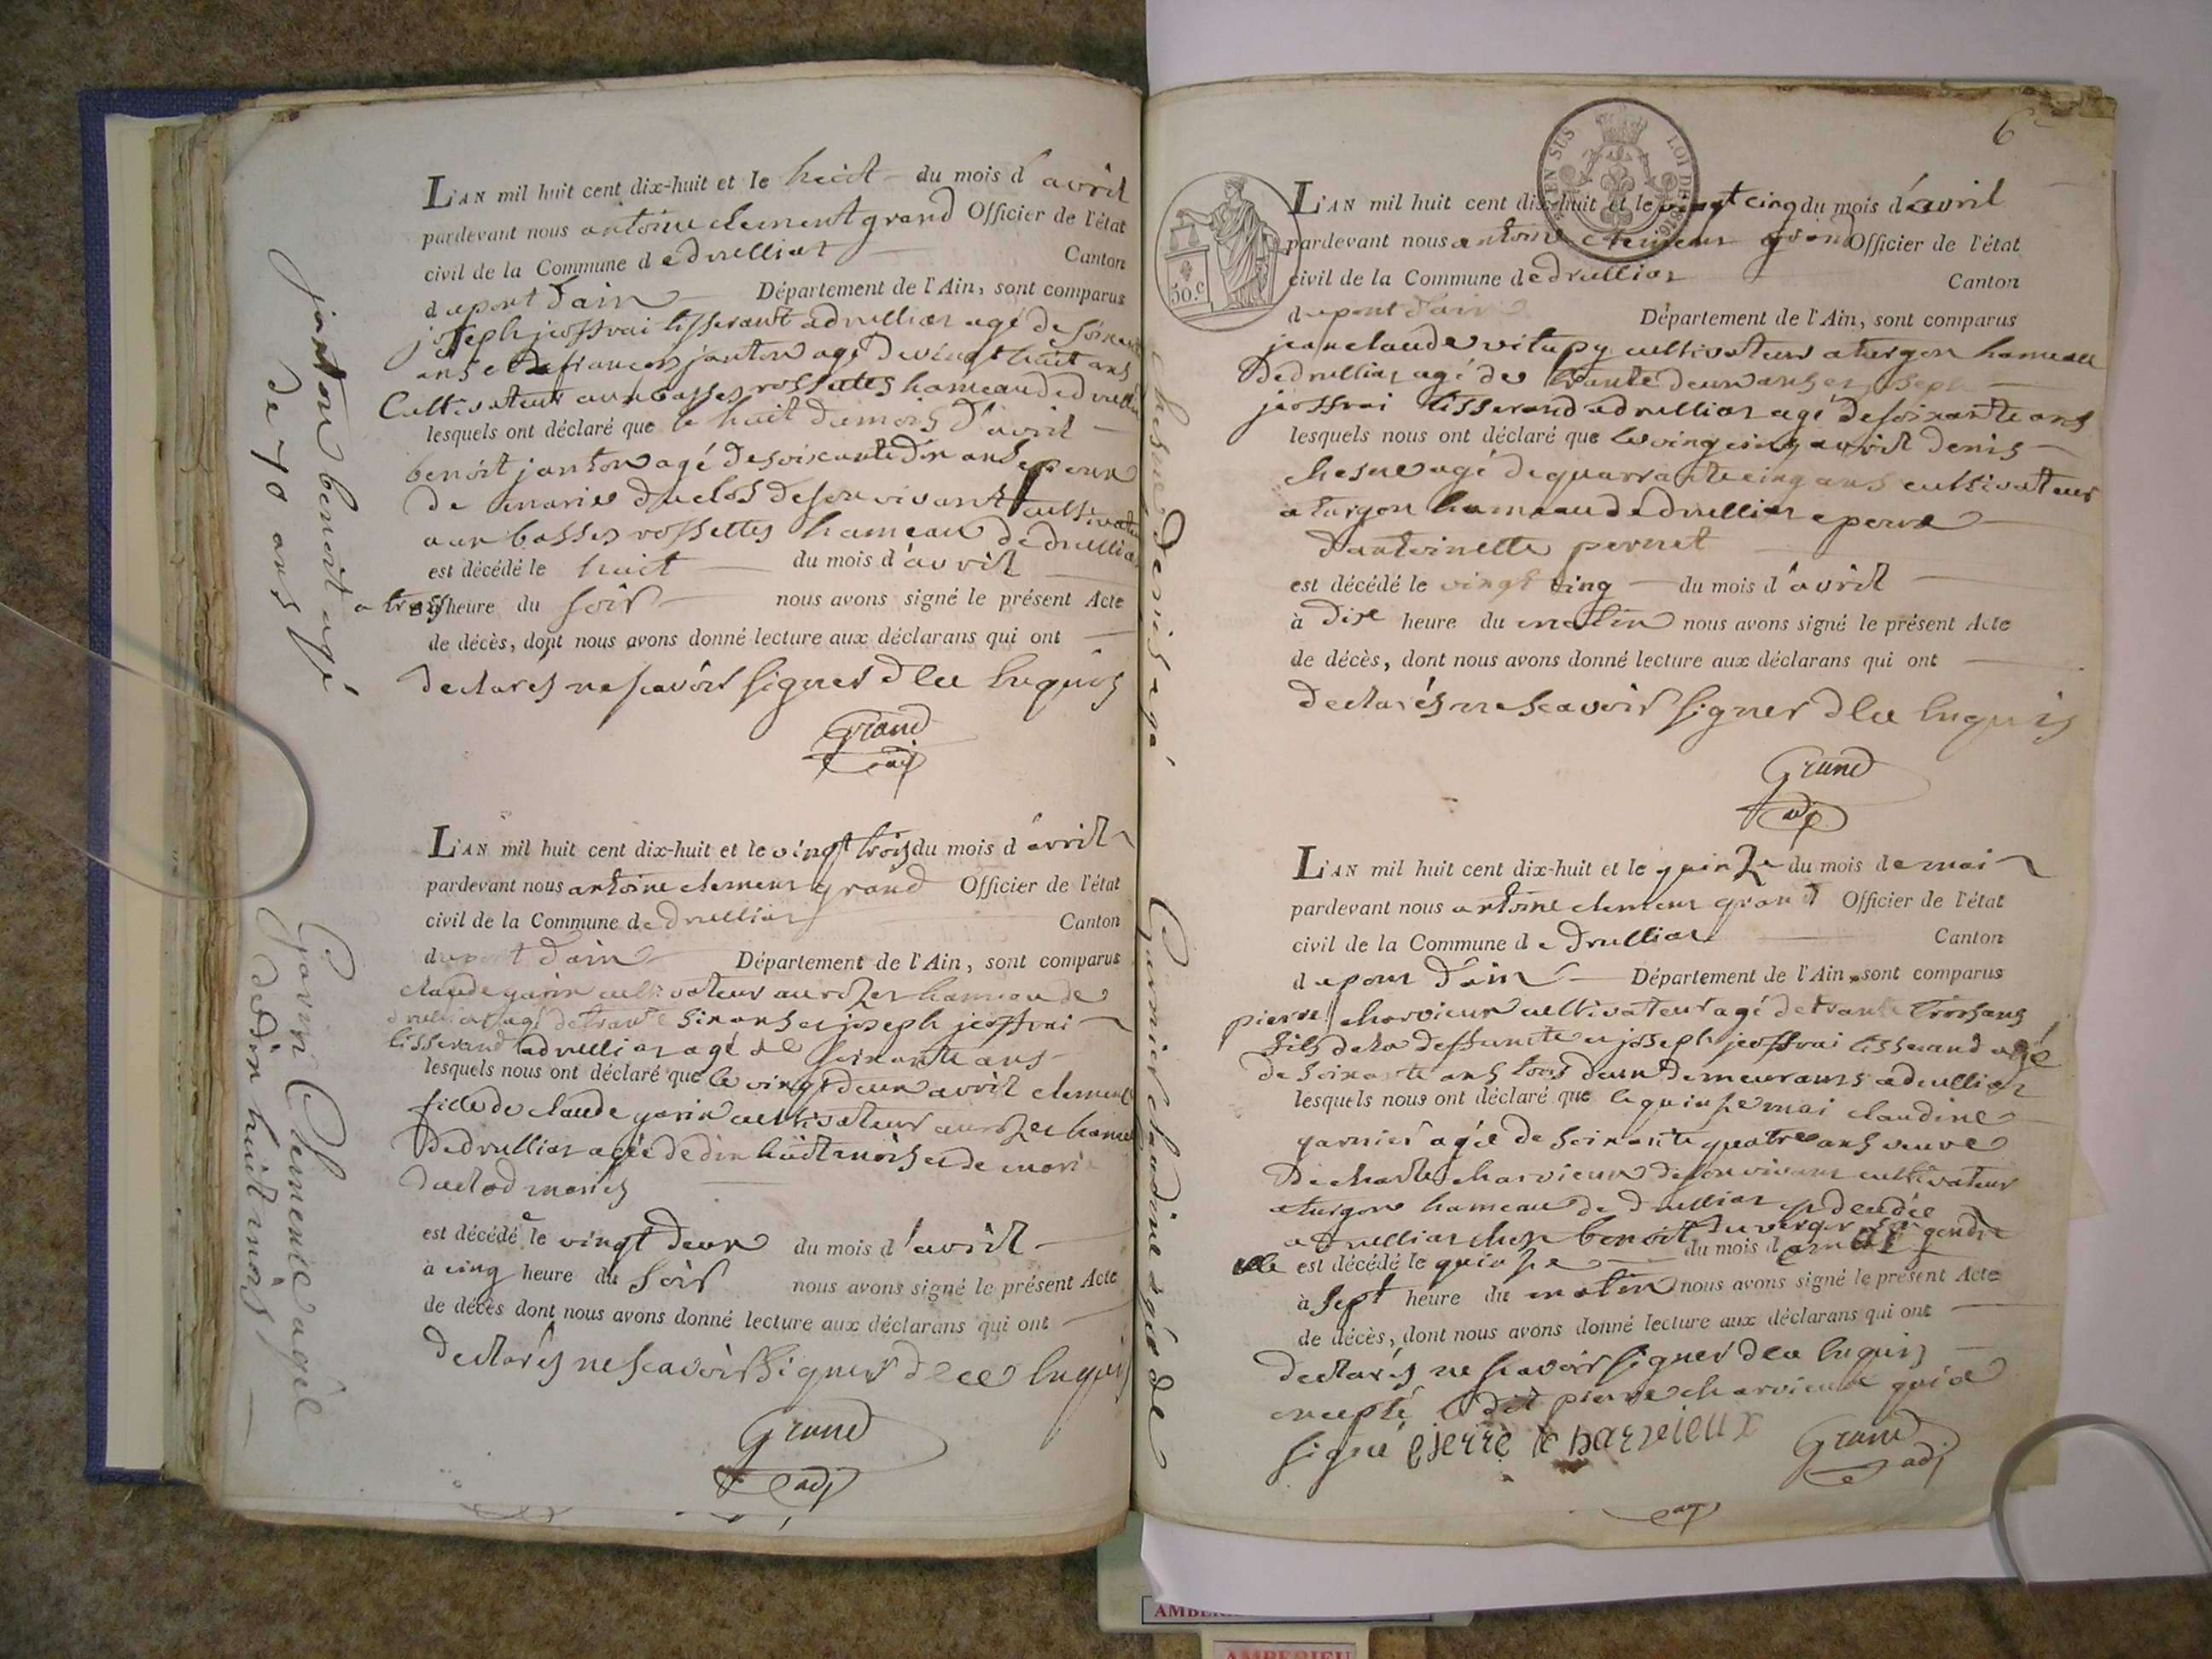 janton benoit agé
de 70 ans
L'AN mil huit cent dix-huit et le huit du mois d avril
pardevant nous antoine clement grand Officier de l'état
civil de la Commune d e druilliat Canton
d upont d'ain Département de l'Ain, sont comparus
joseph jeoffrai tisserant a druillias agé de soixante
ans et francois janton agé de vingt huit ans
Cultivateur aux basses rossettes hameau de druillias
lesquels ont déclaré que le huit du mois d'avril
benoit janton agé de soixante dix ans epoux
de marie duclos de son vivant cultivateur
aux basses rossettes hameau de druillias
est décédé le huit du mois d'avril
a trois heure du soir nous avons signé le présent Acte
de décès, dont nous avons donné lecture aux déclarans qui ont
declarés ne scavoir signer de ce enquis
Grand
adj
Garin Clemence agée
de dix huit mois
L'AN mil huit cent dix-huit et le vingt trois du mois d'avril
pardevant nous antoine clement grand Officier de l'état
civil de la Commune de druillias Canton
du pont d'ain Département de l'Ain, sont comparus
claude garin cultivateur hameau de
druillias agé de trante six ans et joseph jeoffrai
tisserand a druillias agé de soixante ans
lesquels nous ont déclaré que le vingt deux avril clemence
fille de claude garin cultivateur hameau
de druillias agée de dix huit mois et de marie
duclod mariés
est décédée le vingt deux du mois d'avril
à cinq heure du soir nous avons signé le présent Acte
de décès dont nous avons donné lecture aux déclarans qui ont
declarés ne scavoir signer de ce enquis
Grand
adj
6
EN SUS LOI DE 1816
50.c
chesne Denis agé
L'AN mil huit cent dix-huit et le vingt cinq du mois d'avril
pardevant nous antoine clemens grand Officier de l'état
civil de la Commune de druillias Canton
du pont d'ain Département de l'Ain, sont comparus
jean claude vitupy cultivateur a turgon hameau
de druillias agé de trante deux ans et joseph
jeoffrai tisserand a druillias agé de soixante ans
lesquels nous ont déclaré que le vingt cinq avril denis
chesne agé de quarrante cinq ans cultivateur
a turgon hameau de druillias epoux
d'antoinette pernet
est décédé le vingt cinq du mois d'avril
à dix heure du matin nous avons signé le présent Acte
de décès, dont nous avons donné lecture aux déclarans qui ont
declarés ne scavoir signer de ce enquis
Grand
adj
Garnier claudine agée de
L'AN mil huit cent dix-huit et le quinze du mois de mai
pardevant nous antoine clemens grand Officier de l'état
civil de la Commune de druillias Canton
du pont d'ain Département de l'Ain, sont comparus
pierre charvieux cultivateur agé de trante trois ans
fils de la deffunte et joseph jeoffrai tisserand agé
de soixante ans tous deux demeurans a druillias
lesquels nous ont déclaré que le quinze mai claudine
garnier agée de soixante quatre ans veuve
de charle charvieux de son vivant cultivateur
a turgon hameau de druillias decedée
a druillias chez benoit duverger son gendre
elle est décédé le quinze du mois d e mai
à sept heure du matin nous avons signé le présent Acte
de décès, dont nous avons donné lecture aux déclarans qui ont
declarés ne scavoir signer de ce enquis
excepté le dit pierre charvieux qui a
signé pierre charvieux Grand
adj
adj
AMBERIEU